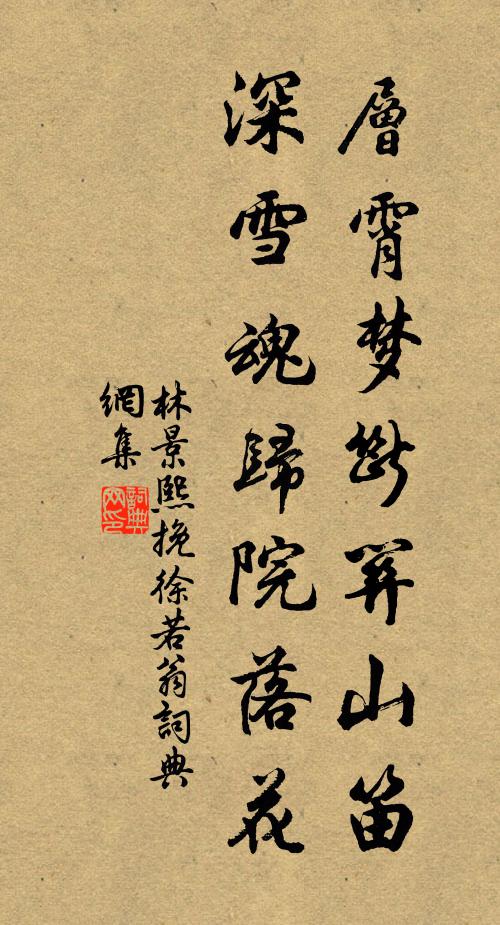 層霄梦斷関山笛
深雪魂歸院落花
林景熙挽徐若翁詞典
網集
詞典
网印